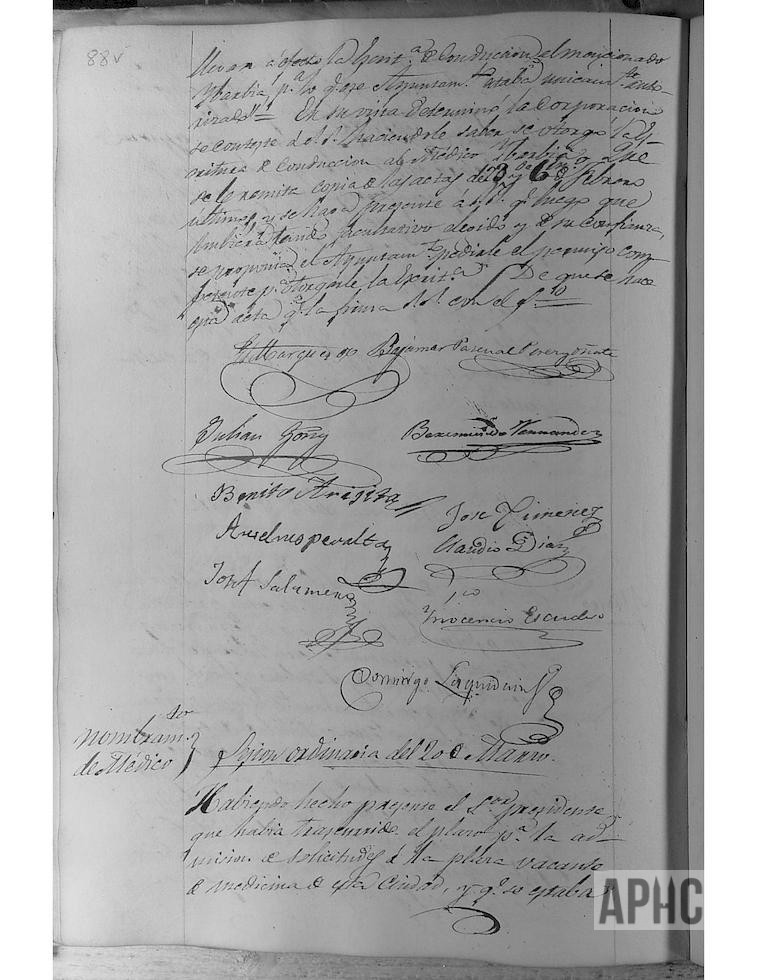 88v
llevar á efecto la Escrit.ª de Conducion el mencionado
Yberbia p.ª lo q.e ese Ayuntam.to estaba unicam.te auto-
rizado = En su vista determinó la Corporacion
se conteste á el S.r haciendole saber se otorgó la Es-
critura de Conducion al Médico Yberbia, y que
se le remita copia de las actas del 3 y 6 de Febrero
ultimo, y se haga presente á q.e luego que
hubiera tenido facultativo elegido y de su confianza,
se proponia el Ayuntam.to pedirle el permiso com-
petente p.ª otorgarle la Escrit.ª De que se hace
esta acta q.e la firma con el
El Marques de Bajamar Pascual Perez Oñate
Julian Goñy Beremundo Hernandez
Benito Arijita
Jose Ximenez
Anselmo peralta
Claudio Diaz
José Salamero
Ynocencio Escudero
Domingo
Nombram.to
de Médico
Sesion ordinaria del 20 de Marzo.
Habiendo hecho presente el S.or Presidente
que habia trascurrido el plazo p.ª la ad-
mision de solicitudes á la plaza vacante
de medicina de esta Ciudad, y q.e se estaba
APHC